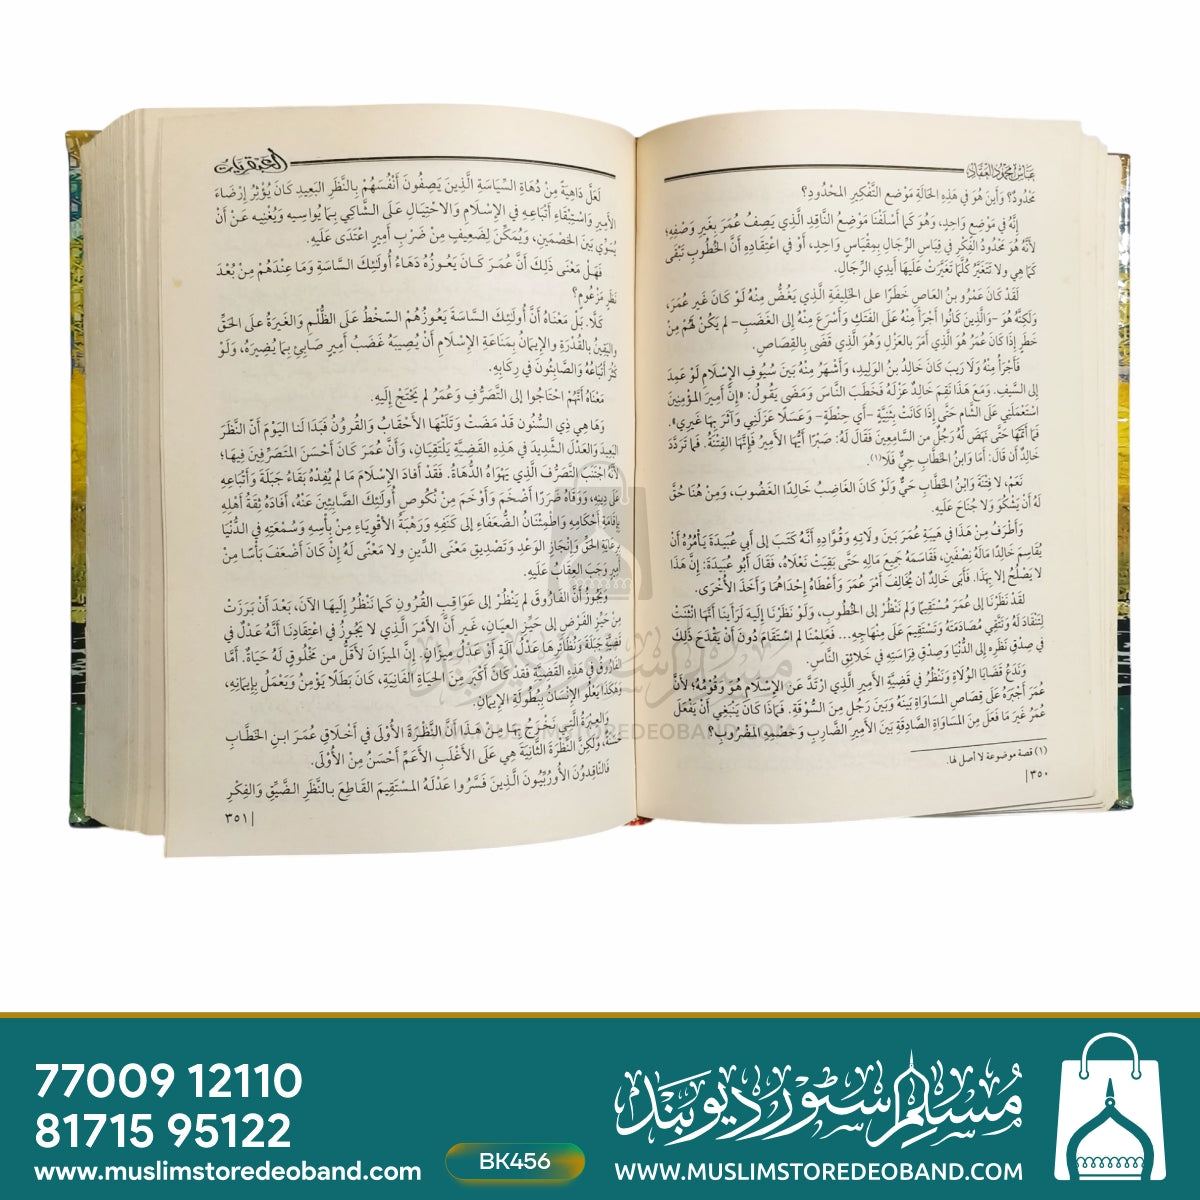 عباس محمود العقاد
مَحْدُودٌ؟ وَأَينَ هُوَ في هَذِهِ الحَالَةِ مَوْضِع التَّفْكِيرِ المَحْدُودِ؟
إِنَّهُ في مَوْضِع وَاحِدٍ، وَهُوَ كَمَا أَسْلَفْنَا مَوْضِعُ النَّاقِدِ الَّذِي يَصِفُ عُمَرَ بِغَيرِ وَصْفِهِ؛
لأَنَّهُ هُوَ مَحْدُودُ الفِكْرِ في قِيَاسِ الرِّجَالِ بِمِقْيَاسٍ وَاحِدٍ، أَوْ في اعْتِقَادِهِ أَنَّ الخُطُوبَ تَبْقَى
كَمَا هِي ولا تَتَغَيَّرُ كُلَّمَا تَغَيَّرَتْ عَلَيهَا أَيدِي الرِّجَالِ.
لَقَدْ كَانَ عَمْرُو بنُ العاصِ خَطَرًا على الخَلِيفَةِ الَّذِي يَغُضُّ مِنْهُ لَوْ كَانَ غَيرَ عُمَرَ،
وَلَكِنَّهُ هُوَ -وَالَّذِينَ كَانُوا أَجْرَأَ مِنْهُ عَلَى الفَتْكِ وَأَسْرَعَ مِنْهُ إلى الغَضَبِ- لَم يَكُنْ لَهُمْ مِنْ
خَطَرٍ إذَا كَانَ عُمَرُ هُوَ الَّذِي أَمَرَ بالعَزْلِ وَهُوَ الَّذِي قَضَى بِالقِصَاصِ.
فَأَجْرَأُ مِنْهُ وَلَا رَيبَ كَانَ خَالِدُ بنُ الوَلِيدِ، وَأَشْهَرُ مِنْهُ بَيْنَ سُيُوفِ الإِسْلَامِ لَوْ عَمِدَ
إلى السَّيفِ. وَمَعَ هَذَا نَقِمَ خَالِدٌ عَزْلَهُ فَخَطَبَ النَّاسَ وَمَضَى يَقُولُ: «إِنَّ أَمِيرَ المُؤْمِنِينَ
اسْتَعْمَلَنِي عَلَى الشَّامِ حَتَّى إِذَا كَانَتْ بَثْنِيَّةً -أَي حِنْطَةً- وَعَسَلًا عَزَلَنِي وَآثَرَ بِهَا غَيرِي».
فَمَا أَتَمَّهَا حَتَّى نَهَضَ لَهُ رَجُلٌ من السَّامِعِينَ فَقَالَ لَهُ: صَبْرًا أَيُّهَا الأَمِيرُ فَإِنَّهَا الفِتْنَةُ. فَمَا تَرَدَّدَ
خَالِدٌ أن قَالَ: أَمَا وَابنُ الخَطَّابِ حِيٌّ فَلَا(١).
نَعَمْ، لا فِتْنَةَ وَابْنُ الخَطَّابِ حَيٌّ وَلَوْ كَانَ الغَاضِبُ خَالِدًا الغَضُوبَ، وَمِنْ هُنَا حُقَّ
لَهُ أَنْ يَشْكُوَ وَلا جُنَاحَ عَلَيهِ.
وَأَطْرَفُ مِنْ هَذَا في هَيبَةِ عُمَرَ بَينَ وُلَاتِهِ وَقُوَّادِهِ أَنَّهُ كَتَبَ إلى أَبي عُبَيدَةَ يَأْمُرُهُ أَنْ
يُقَاسِمَ خَالِدًا مَالَهُ نِصْفَينِ، فَقَاسَمَهُ جَمِيعَ مَالِهِ حَتَّى بَقِيَتْ نَعْلَاهُ، فَقَالَ أَبُو عُبَيدَةَ: إِنَّ هَذَا
لا يَصْلُحُ إلا بِهَذَا. فَأَبَى خَالِدٌ أن يُخَالِفَ أَمْرَ عُمَرَ وَأَعْطَاهُ إِحْدَاهُمَا وَأَخَذَ الأُخْرَى.
لَقَدْ نَظَرْنَا إِلَى عُمَرَ مُسْتَقِيمًا وَلَم نَنْظُرْ إلى الخُطُوبِ، وَلَوْ نَظَرْنَا إِلَيهِ لَرَأَينَا أَنَّهَا انْثَنَتْ
لِتَنْقَادَ لَهُ وَتَتَّقِي مُصَادَمَتَهُ وَتَسْتَقِيمَ عَلَى مِنْهَاجِهِ... فَعَلِمْنَا لم اسْتَقَامَ دُونَ أَنْ يَقْدَحَ ذَلِكَ
في صِدْقِ نَظَرِهِ إِلَى الدُّنْيَا وَصِدْقِ فِرَاسَتِهِ في خَلَائِقِ النَّاسِ.
وَنَدَعُ قَضَايَا الوُلَاةِ وَنَنْظُرُ في قَضِيَّةِ الأَمِيرِ الَّذِي ارْتَدَّ عَنِ الإِسْلَامِ هُوَ وَقَوْمُهُ؛ لأَنَّ
عُمَرَ أَجْبَرَهُ عَلَى قِصَاصِ المُسَاوَاةِ بَينَهُ وَبَينَ رَجُلٍ مِنَ السُّوقَةِ. فَمَاذَا كَانَ يَنْبَغِي أَنْ يَفْعَلَ
عُمَرُ غَيرَ مَا فَعَلَ مِنَ المُسَاوَاةِ الصَّادِقَةِ بَينَ الأَمِيرِ الضَّارِبِ وَخَصْمِهِ المَضْرُوبِ؟
(١) قصة موضوعة لا أصل لها.
٣٥٠
العبقريات
لَعَلَّ دَاهِيَةً مِنْ دُهَاةِ السِّيَاسَةِ الَّذِينَ يَصِفُونَ أَنْفُسَهُمْ بِالنَّظَرِ البَعِيدِ كَانَ يُؤْثِرُ إِرْضَاءَ
الأَمِيرِ وَاسْتِبْقَاءَ أَتْبَاعِهِ في الإِسْلَامِ وَالاحْتِيَالَ عَلَى الشَّاكِي بِمَا يُوَاسِيه وَيُغْنِيهِ عَنْ أَنْ
يُسَوِّيَ بَينَ الخَصْمَينِ، وَيُمَكِّنَ لِضَعِيفٍ مِنْ ضَرْبِ أَمِيرٍ اعْتَدَى عَلَيهِ.
فَهَلْ مَعْنَى ذَلِكَ أَنَّ عُمَرَ كَانَ يَعُوزُهُ دَهَاءُ أُولَئِكَ السَّاسَةِ وَمَا عِنْدَهُمْ مِنْ بُعْدَ
نَظَرٍ مَزْعُومٍ؟
كَلَّا. بَلْ مَعْنَاهُ أَنَّ أُولَئِكَ السَّاسَةَ يَعُوزُهُمْ السّخْطُ عَلَى الظُّلْمِ وَالغَيرَةُ على الحَقِّ
واليَقِينُ بالقُدْرَةِ والإِيمَانُ بِمَنَاعَةِ الإِسْلَامِ أَنْ يُصِيبَهُ غَضَبُ أَمِيرٍ صَابِئٍ بِمَا يُضِيرُهُ، وَلَوْ
كَثُرَ أَتْبَاعُهُ وَالصَّابِئُونَ في رِكَابِهِ.
مَعْنَاهُ أَنَّهُمْ احْتَاجُوا إلى التَّصَرُّفِ وَعُمَرُ لم يَحْتَجْ إِلَيهِ.
وَهَا هِي ذِي السُّنُونَ قَدْ مَضَتْ وَتَلَتْهَا الأَحْقَابُ وَالقُرُونُ فَبَدَا لَنَا اليَوْمَ أَنَّ النَّظَرَ
البَعِيدَ وَالعَدْلَ الشَّدِيدَ في هَذِهِ القَضِيَّةِ يَلْتَقِيَانِ، وَأَنَّ عُمَرَ كَانَ أَحْسَنَ المُتَصَرِّفِينَ فِيهَا؛
لأَنَّهُ اجْتَنَبَ التَّصَرُّفَ الَّذِي يَهْوَاهُ الدُّهَاةُ. فَقَدْ أَفَادَ الإِسْلَامَ مَا لم يُفِدْهُ بَقَاءُ جَبَلَةَ وَأَتْبَاعِهِ
عَلَى دِينِهِ، وَوَقَاهُ ضَرَرًا أَضْخَمَ وَأَوْخَمَ مِنْ نُكُوصِ أُولَئِكَ الصَّابِئِينَ عَنْهُ، أَفَادَهُ ثِقَةُ أَهْلِهِ
بِإِقَامَةِ أَحْكَامِهِ وَاطْمِئْنَانُ الضُّعَفَاءِ إلى كَنَفِهِ وَرَهْبَةُ الأَقْوِيَاءِ مِنْ بَأْسِهِ وَسُمْعَتِهِ في الدُّنْيَا
بِرِعَايَةِ الحَقِّ وَإِنْجَازِ الوَعْدِ وَتَصْدِيقِ مَعْنَى الدِّينِ ولا مَعْنَى لَهُ إِنْ كَانَ أَضْعَفَ بَأْسًا مِنْ
أَمِيرٍ وَجَبَ العِقَابُ عَلَيهِ.
وَيَجُوزُ أَنَّ الفَارُوقَ لَم يَنْظُرْ إلى عَوَاقِبِ القُرُونِ كَمَا نَنْظُرُ إِلَيهَا الآنَ، بَعْدَ أَنْ بَرَزَتْ
مِنْ حَيِّزِ الفَرْضِ إلى حَيِّزِ العِيَانِ، غَيرَ أَنَّ الأَمْرَ الَّذِي لا يَجُوزُ في اعْتِقَادِنَا أَنَّهُ عَدْلٌ في
قَضِيَّةِ جَبَلَةَ وَنَظَائِرِهَا عَدْلُ آلَةٍ أَوْ عَدْلُ مِيزَانٍ. إِنَّ المِيزَانَ لأَقَلُّ من مَخْلُوقٍ لَهُ حَيَاةٌ. أَمَّا
الفَارُوقُ في هَذِهِ القَضِيَّةِ فَقَدْ كَانَ أَكْبَرَ مِنَ الحَيَاةِ الفَانِيَةِ، كَانَ بَطَلًا يُؤْمِنُ وَيَعْمَلُ بِإِيمَانِهِ،
وَهَكَذَا يَعْلُو الإِنْسَانُ بِبُطُولَةِ الإِيمَانِ.
وَالعِبْرَةُ الَّتِي نَخْرُجُ بِهَا مِنْ هَذَا أَنَّ النَّظْرَةَ الأُوْلَى في أَخْلَاقِ عُمَرَ ابنِ الخَطَّابِ
حَسَنَةٌ، وَلَكِنَّ النَّظْرَةَ الثَّانِيَةَ هِيَ عَلَى الأَغْلَبِ الأَعَمِّ أَحْسَنُ مِنْ الأُوْلَى.
فَالنَّاقِدُونَ الأُورُبِّيُّونَ الَّذِينَ فَسَّرُوا عَدْلَهُ المُسْتَقِيمَ القَاطِعَ بالنَّظَرِ الضَّيِّقِ وَالفِكْرِ
٣٥١
مسلم سٹور دیوبند
WWW.MUSLIMSTOREDEOBAND.COM
77009 12110
81715 95122
www.muslimstoredeoband.com
BK456
مسلم سٹور دیوبند
WWW.MUSLIMSTOREDEOBAND.COM